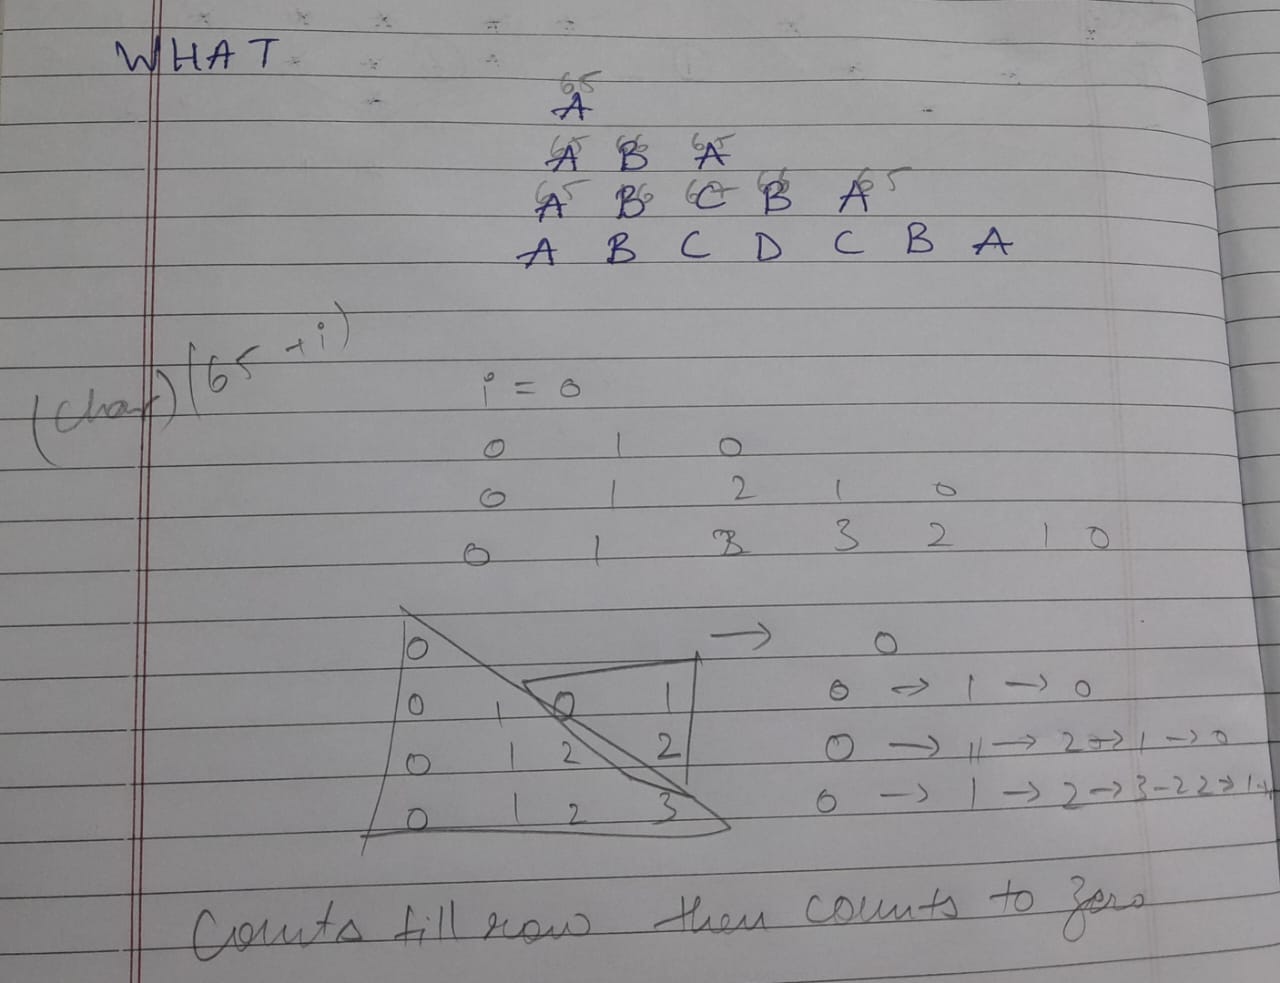 WHAT
65
A
65 66 65
A B A
65 66 67 66 65
A B C B A
A B C D C B A
(char)(65 + i)
i = 0
0 1 0
0 1 2 1 0
0 1 3 2 1 0
0 → 0
0 1 0 1 0 → 1 → 0
0 1 2 2 0 → 1 → 2 → 1 → 0
0 1 2 3 0 → 1 → 2 → 3
Counts till row then counts to zero